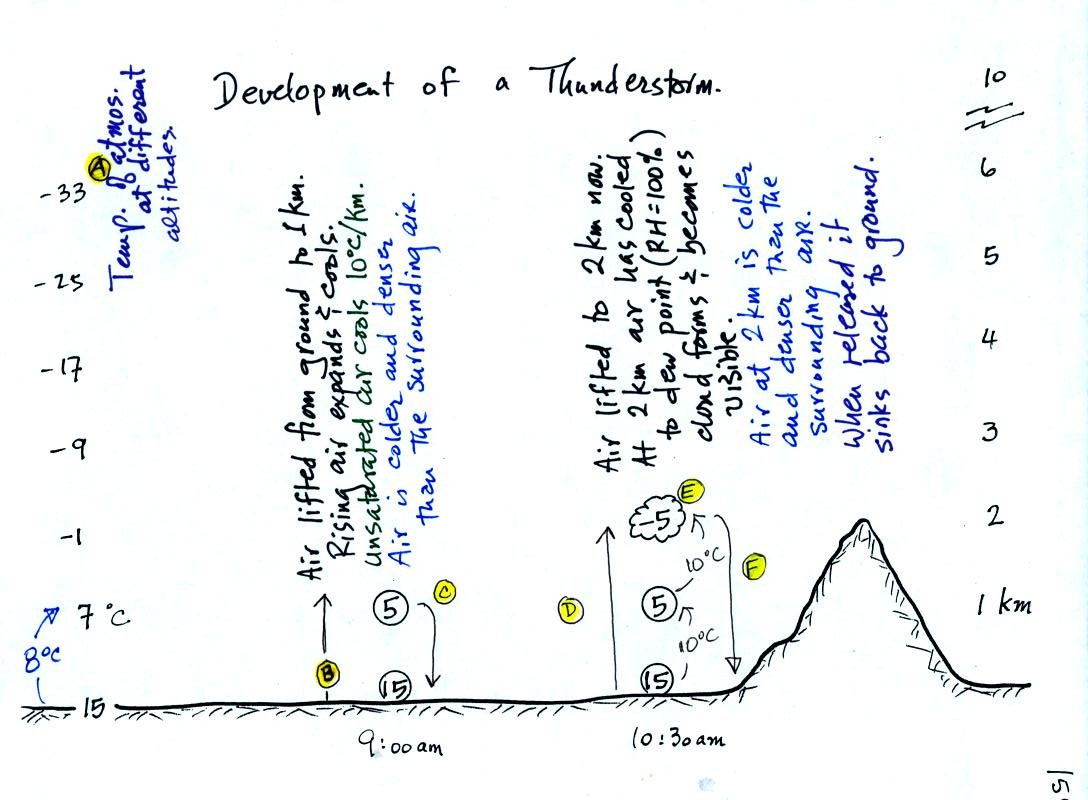 Development of a Thunderstorm.
A
Temp. of atmos.
at different
altitudes.
-33
-25
-17
-9
-1
7 °C
8°C
15
10
6
5
4
3
2
1 km
Air lifted from ground to 1 km.
Rising air expands & cools.
Unsaturated air cools 10°C/km.
Air is colder and denser
than the surrounding air.
B
5
C
15
9:00am
Air lifted to 2 km now.
At 2 km air has cooled
to dew point (RH=100%)
cloud forms & becomes
visible.
Air at 2 km is colder
and denser than the
surrounding air.
When released it
sinks back to ground.
D
E
-5
10°C
F
5
10°C
15
10:30am
15